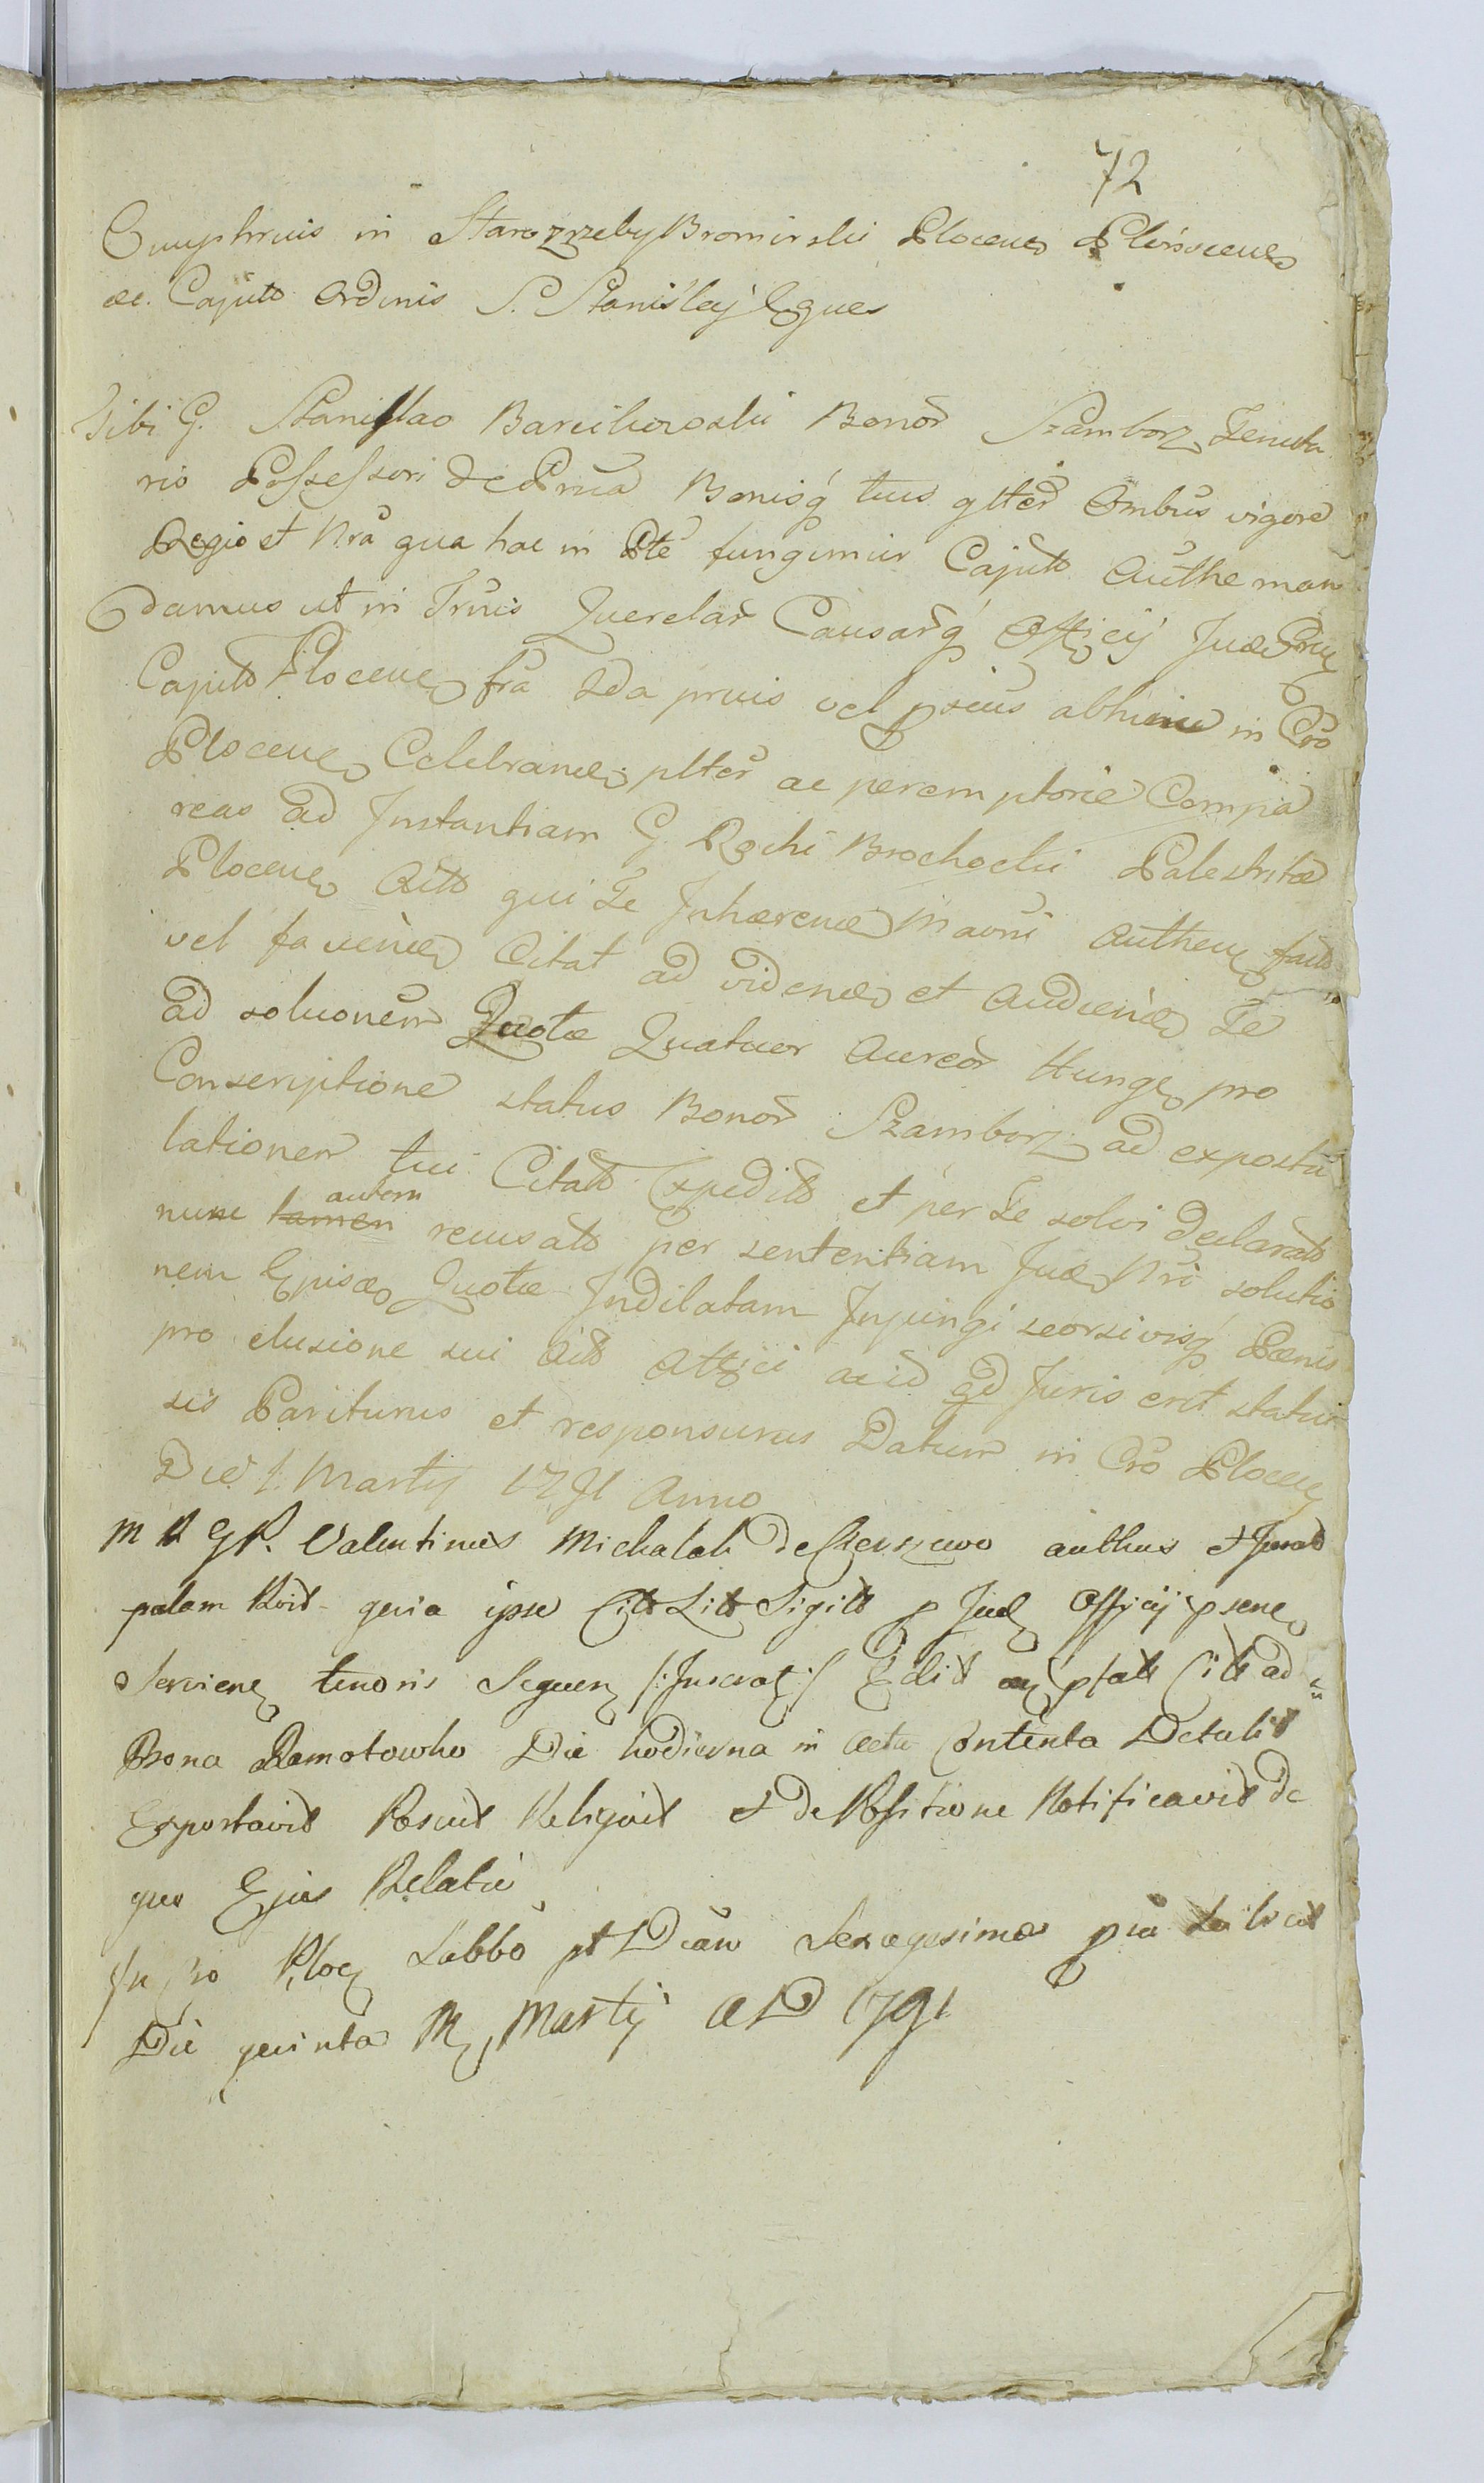 72
Onuphrius in Starozrzeby Bromirski Plocens Plońscens
ac. Capito Ordinis S. Stanislaj Eques
Tibi G. Stanislao Barcikowski Bonor Szamborz Tenuta
rio Possessori de Prna Bonisq tuis glter Ombus vigore
Regio et Nra qua hac in Pte fungimur Capito Authe man
damus ut in Trnis Querelar Causarq Officij Jud Prn
Capito Plocens fra 2da pruis vel pcius abhinc in Cro
Plocens Celebrand plter ac peremptorie Compa
reas ad Instantiam G. Rochi Brochocki Palestritæ
Plocens Citt qui Te Inhærend Mauni Authen facto
vel faciend Citat ad videnda et Audiend Te
ad soluonem Quotæ Quatuor Aureor Hung pro
Conscriptione status Bonor Szamborz ad expostu
lationem tui Citato Expedito et per Te solvi declarato
nunc tamen autem recusato per sententiam Jud Nri solutio
nem Episd Quotæ Indilatam Injungi seorsivisq Pænis
pro elusione sui Citt Affici ac id qd Juris erit statui
sis Pariturus et responsurus Datum in Cro Plocens
Die 1. Martij 1791 Anno
M R G P. Valentinus Michalak de authus et Jurat
palam Rcvit qevia ipse Citt Litt Sigilt p Jud Officij psens
Serviens tenoris Sequen /:Inserat:/ Edit pfatt Citt ad
Bona Ramotowko Die hodierna in actu Contenta Detulit
Exportavit Posuit Reliquit et de Positione Notificavit de
quo Ejus Relatio
In Cro Ploc Sabbo pt Dcam Sexagesimæ pia
Die quinta M. Martij A D 1791